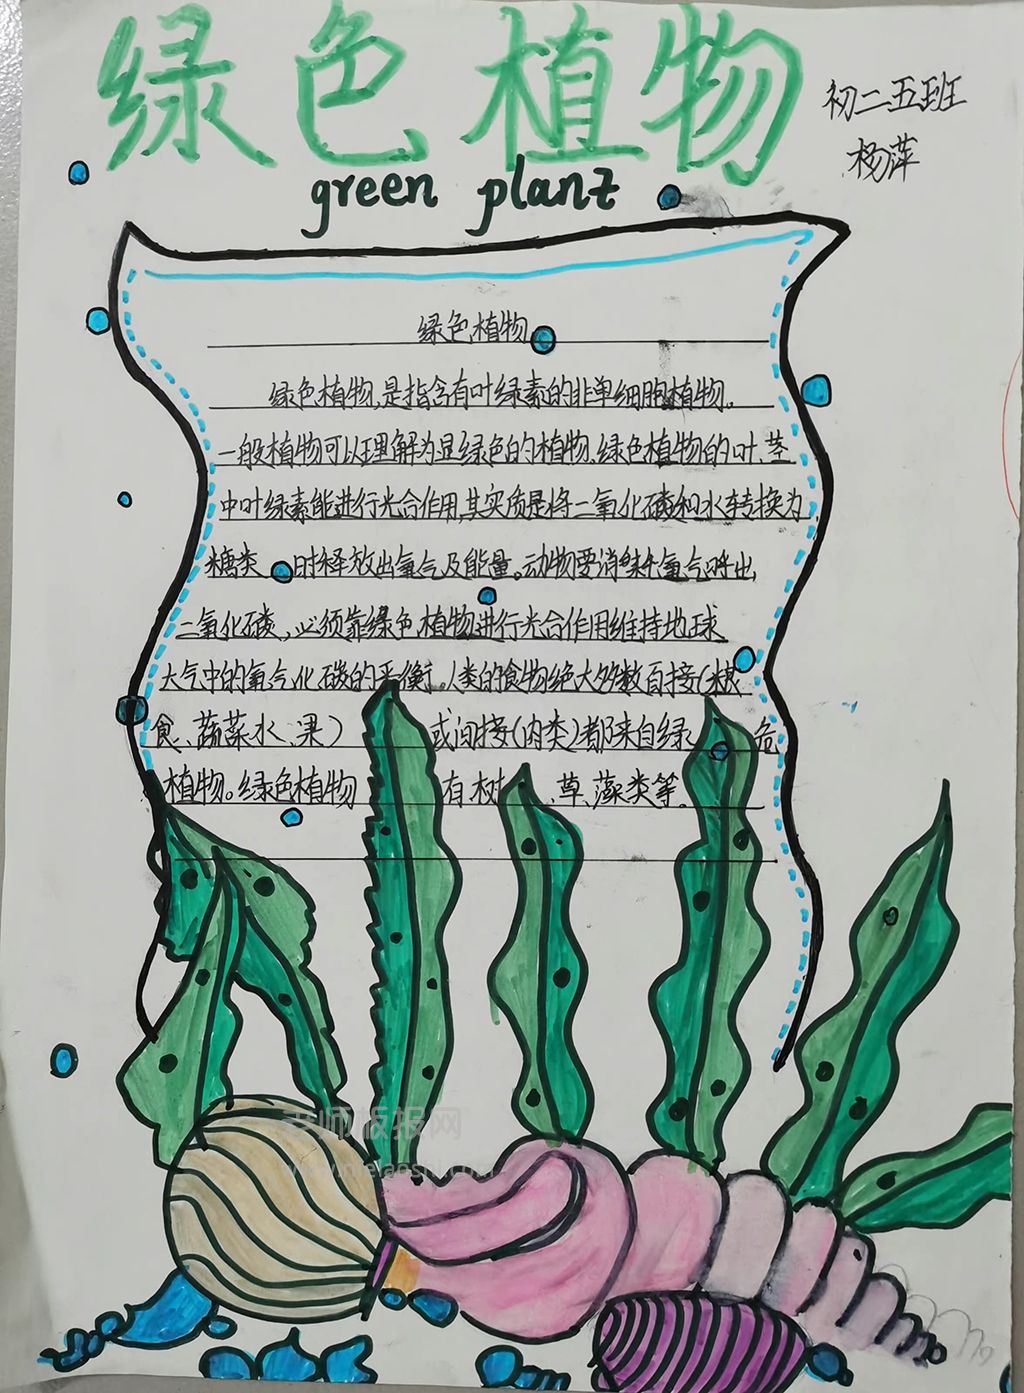 绿色植物
初二五班
杨萍
green plant
绿色植物
绿色植物,是指含有叶绿素的非单细胞植物。
一般植物可以理解为是绿色的植物.绿色植物的叶、茎
中叶绿素能进行光合作用,其实质是将二氧化碳和水转换为
糖类 时释放出氧气及能量。动物要消耗氧气呼出
二氧化碳,必须靠绿色植物进行光合作用维持地球
大气中的氧气化碳的平衡。人类的食物绝大多数直接(粮
食、蔬菜水、果) 或间接(肉类)都来自绿
植物。绿色植物 有树 、草、藻类等。
老师板报网